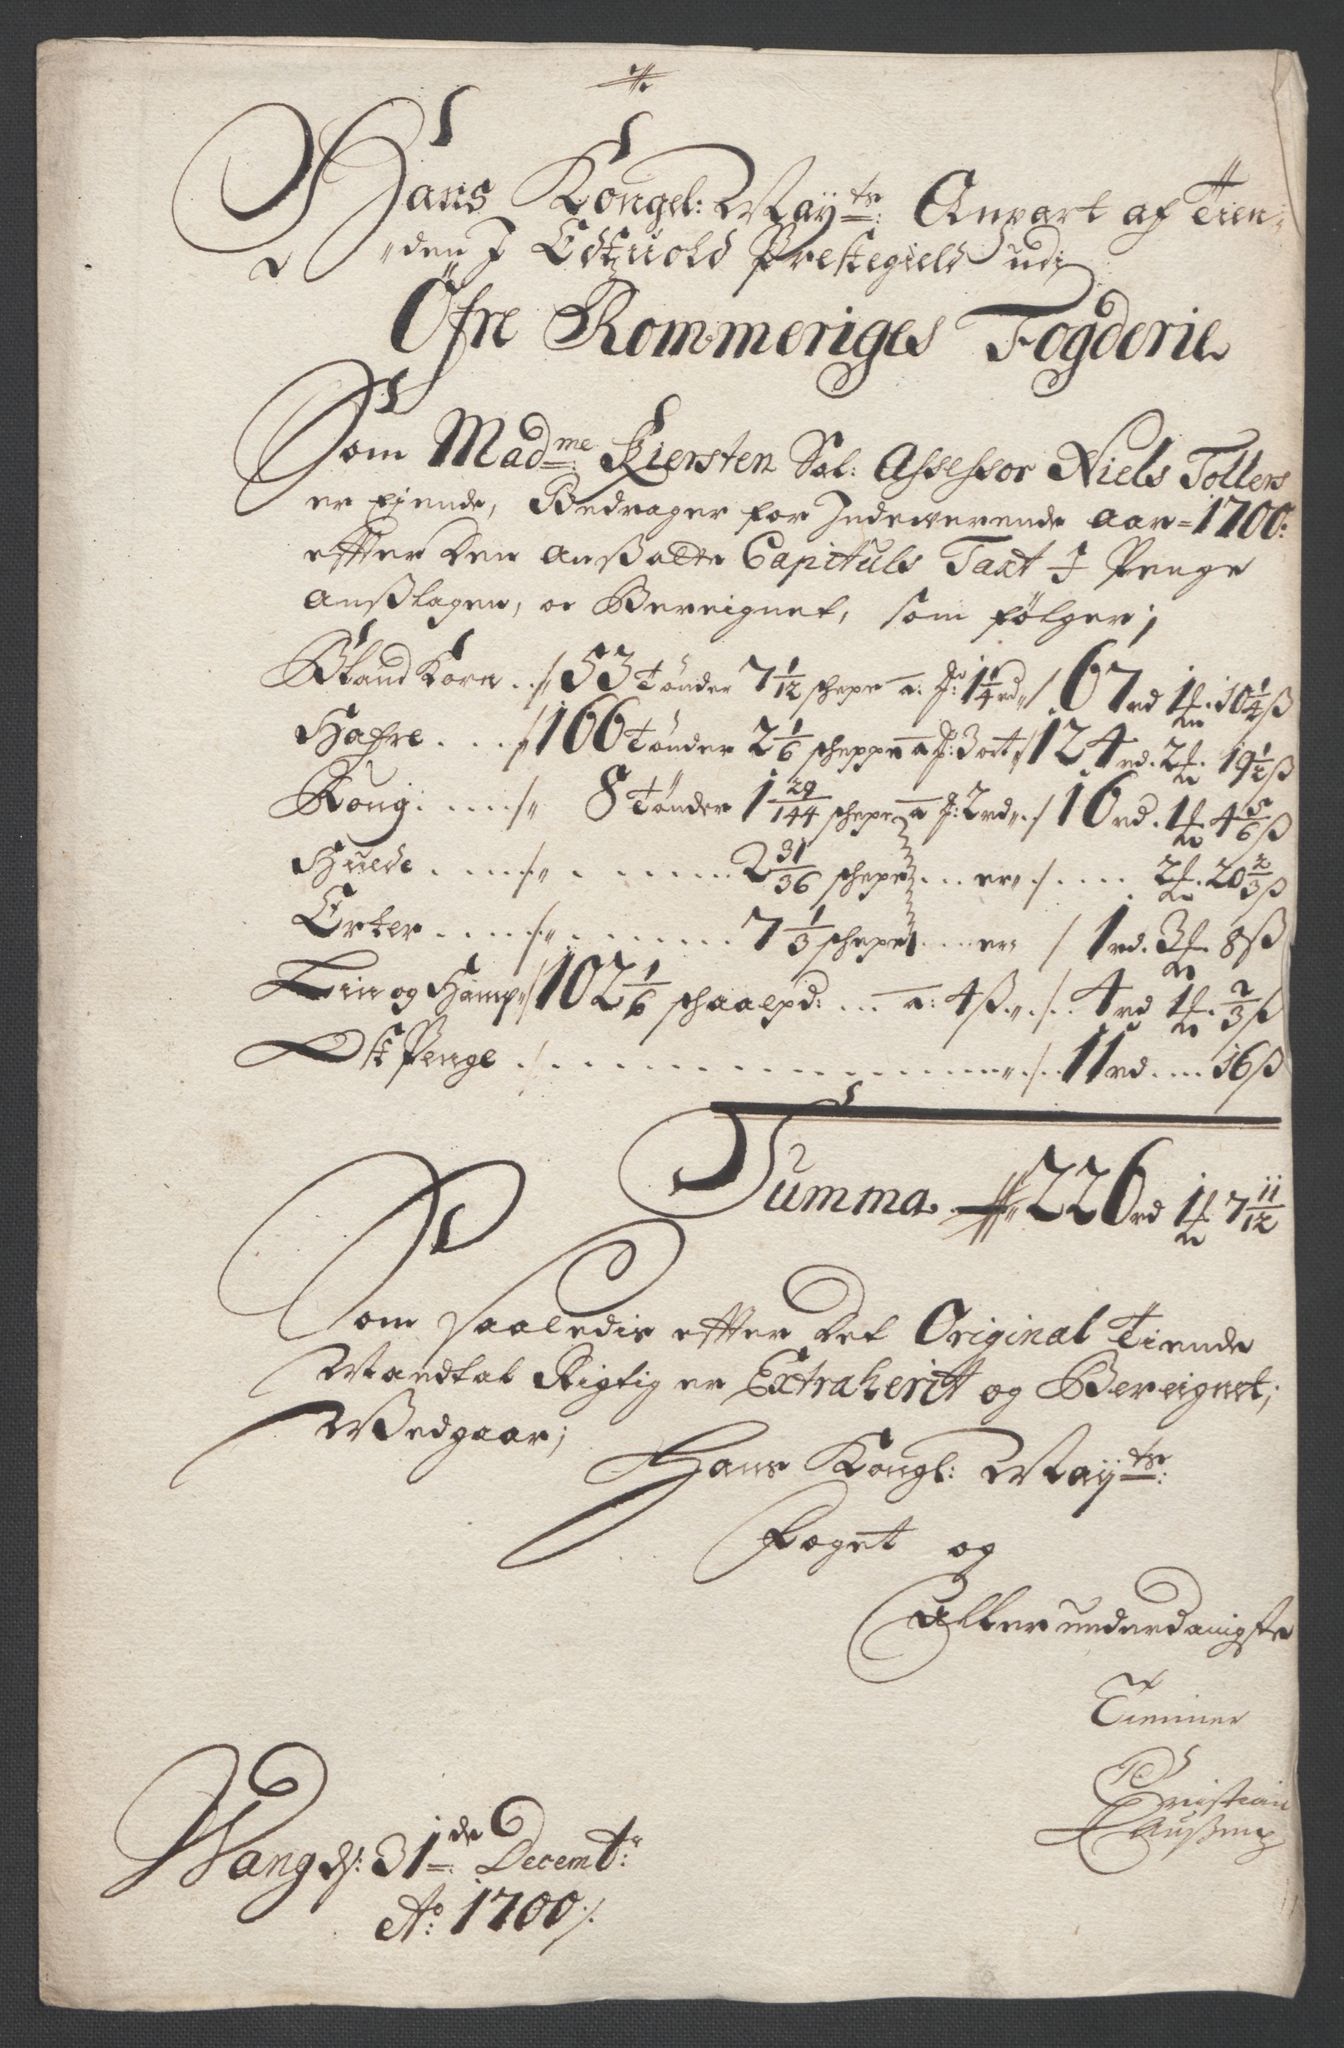 Hans Kongel: Mayts: Anpart af Tien-
den J Edtzuold Prestegield udj
Öfre Rommeriges Fogderie
Som Madme: Kiersten Sal: Assessor Niels Tollers
er eiende, Bedrager for Indeverende aar = 1700:
efter den ansatte Capituls Taxt J Penge
anslagen, oc Bereignet, som følger;
Bland Korn ./. 53 Tønder 7 1/12 schepe a: Td: 1 1/4 rd ./. 67 rd 1 ℔. 10 1/4 ß
Hafre .... ./. 166 Tønder 2 1/6 scheppe a Td: 3 ort ./. 124 rd. 2 ℔. 19 1/2 ß
Roug: .... ./. 8 Tønder 1 29/144 schepe a Td: 2 rd ./. 16 rd. 1 ℔. 4 5/6 ß
Huede .... ./. ...... 2 31/36 schepe ... er ./. .... 2 ℔. 20 2/3 ß
Erter .... ./. ...... 7 1/3 schepe .... er / 1 rd. 3 ℔. 8 ß
Lin og Hamp ./. 102 1/6 schaalpd: ... a: 4 ß ./. 4 rd 1 ℔. 2/3 ß
Ost Penge ./. .............. ./. 11 rd .... 16 ß
Summa 226 rd 1 ℔ 7 11/12
Som saaledis efter det Original Tiende
Mandtal Rigtig er Extraherit og Bereignet;
Vedgaar;
Hans Kongl: Mayts:
Foget og
Allerunderdanigste
Tienner
Christian
Wang ds: 31de: Decembr:
Ao: 1700 ./.